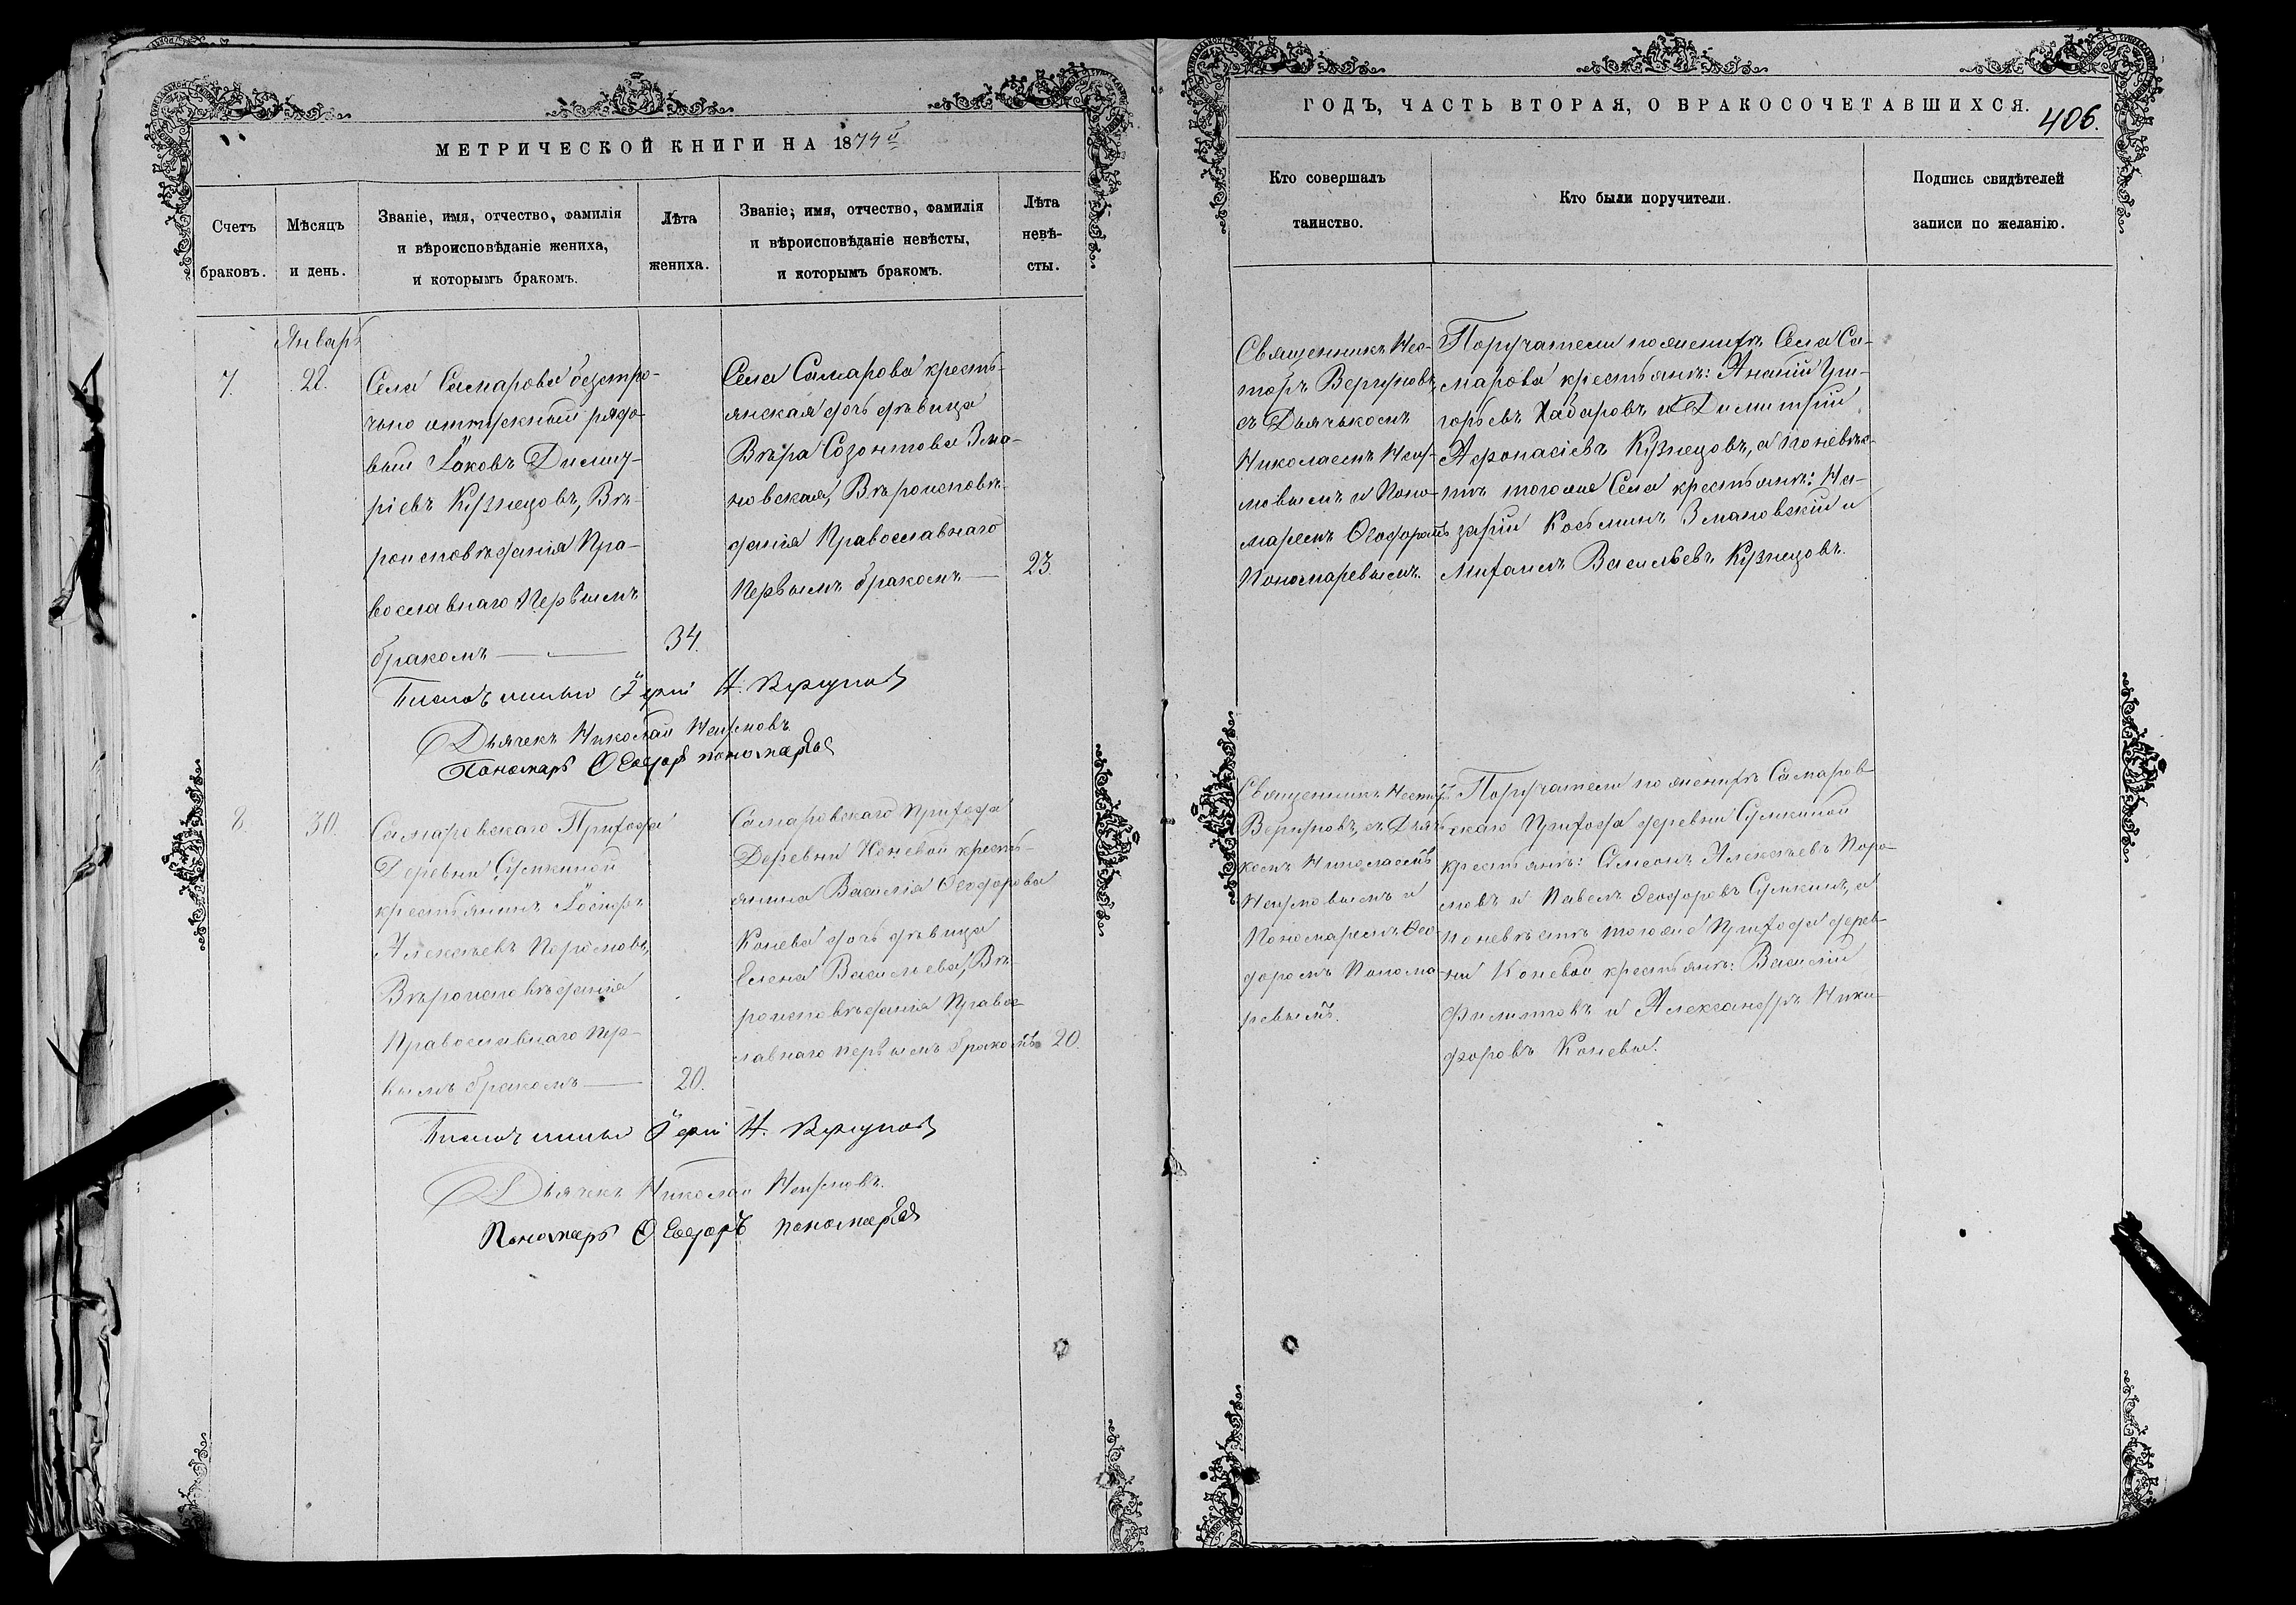 МЕТРИЧЕСКОЙ КНИГИ НА 1874й
ГОДЪ, ЧАСТЬ ВТОРАЯ, О БРАКОСОЧЕТАВШИХСЯ.
406.
Счетъ
браковъ.
Мѣсяцъ
и день.
Званіе, имя, отчество, фамилія
и вѣроисповѣданіе жениха,
и которымъ бракомъ.
Лѣта
жениха.
Званіе, имя, отчество, фамилія
и вѣроисповѣданіе невѣсты,
и которымъ бракомъ.
Лѣта
невѣ-
сты.
Кто совершалъ
таинство.
Кто были поручители.
Подпись свидѣтелей
записи по желанію.
Январь
7.
22.
Села Самарова безсро-
чно отпускный рядо-
вый Іаковъ Димит-
ріевъ Кузнецовъ, Вѣ-
роисповѣданія Пра-
вославнаго Первымъ
бракомъ
34.
Села Самарова кресть-
янская дочь дѣвица
Вѣра Созонтова Зма-
новская, Вѣроисповѣ-
данія Православнаго
Первымъ бракомъ
23
Священникъ Нес-
торъ Вергуновъ,
съ Дьячькомъ
Николаемъ Неу-
мовымъ и Поно-
маремъ Ѳеодоромъ
Пономаревымъ.
Поручатели по женихѣ Села Са-
марова крестьяне: Ананій Гри-
горьевъ Хабаровъ и Димитрій
Афонасіевъ Кузнецовъ, а по невѣс-
тѣ тогоже Села крестьяне: На-
зарій Косьминъ Змановскій и
Михаилъ Васильевъ Кузнецовъ.
Іерей Н. Вергуновъ
Дьячекъ Николай Неумовъ
Пономарь Ѳеодоръ Пономаревъ
8.
30.
Самаровскаго Прихода
Деревни Сумкиной
крестьянинъ Іосифъ
Алексѣевъ Поромовъ,
Вѣроисповѣданія
Православнаго Пер-
вымъ бракомъ
20.
Самаровскаго Прихода
Деревни Коневой кресть-
янина Василія Ѳеодорова
Конева дочь дѣвица
Елена Васильева, Вѣ-
роисповѣданія Правос-
лавнаго первымъ бракомъ
20.
Священникъ Несторъ
Вергуновъ, съ Дьяч-
комъ Николаемъ
Неумовымъ и
Пономаремъ Ѳео-
доромъ Понома-
ревымъ.
Поручатели по женихѣ Самаров-
скаго Прихода деревни Сумкиной
крестьяне: Симеонъ Алексѣевъ Поро-
мовъ и Павелъ Ѳеодоровъ Сумкинъ, а
по невѣстѣ тогоже Прихода дерев-
ни Коневой крестьяне: Василій
Филиповъ и Александръ Ники-
форовъ Коневы.
Іерей Н. Вергуновъ
Дьячекъ Николай Неумовъ.
Пономарь Ѳеодоръ Пономаревъ